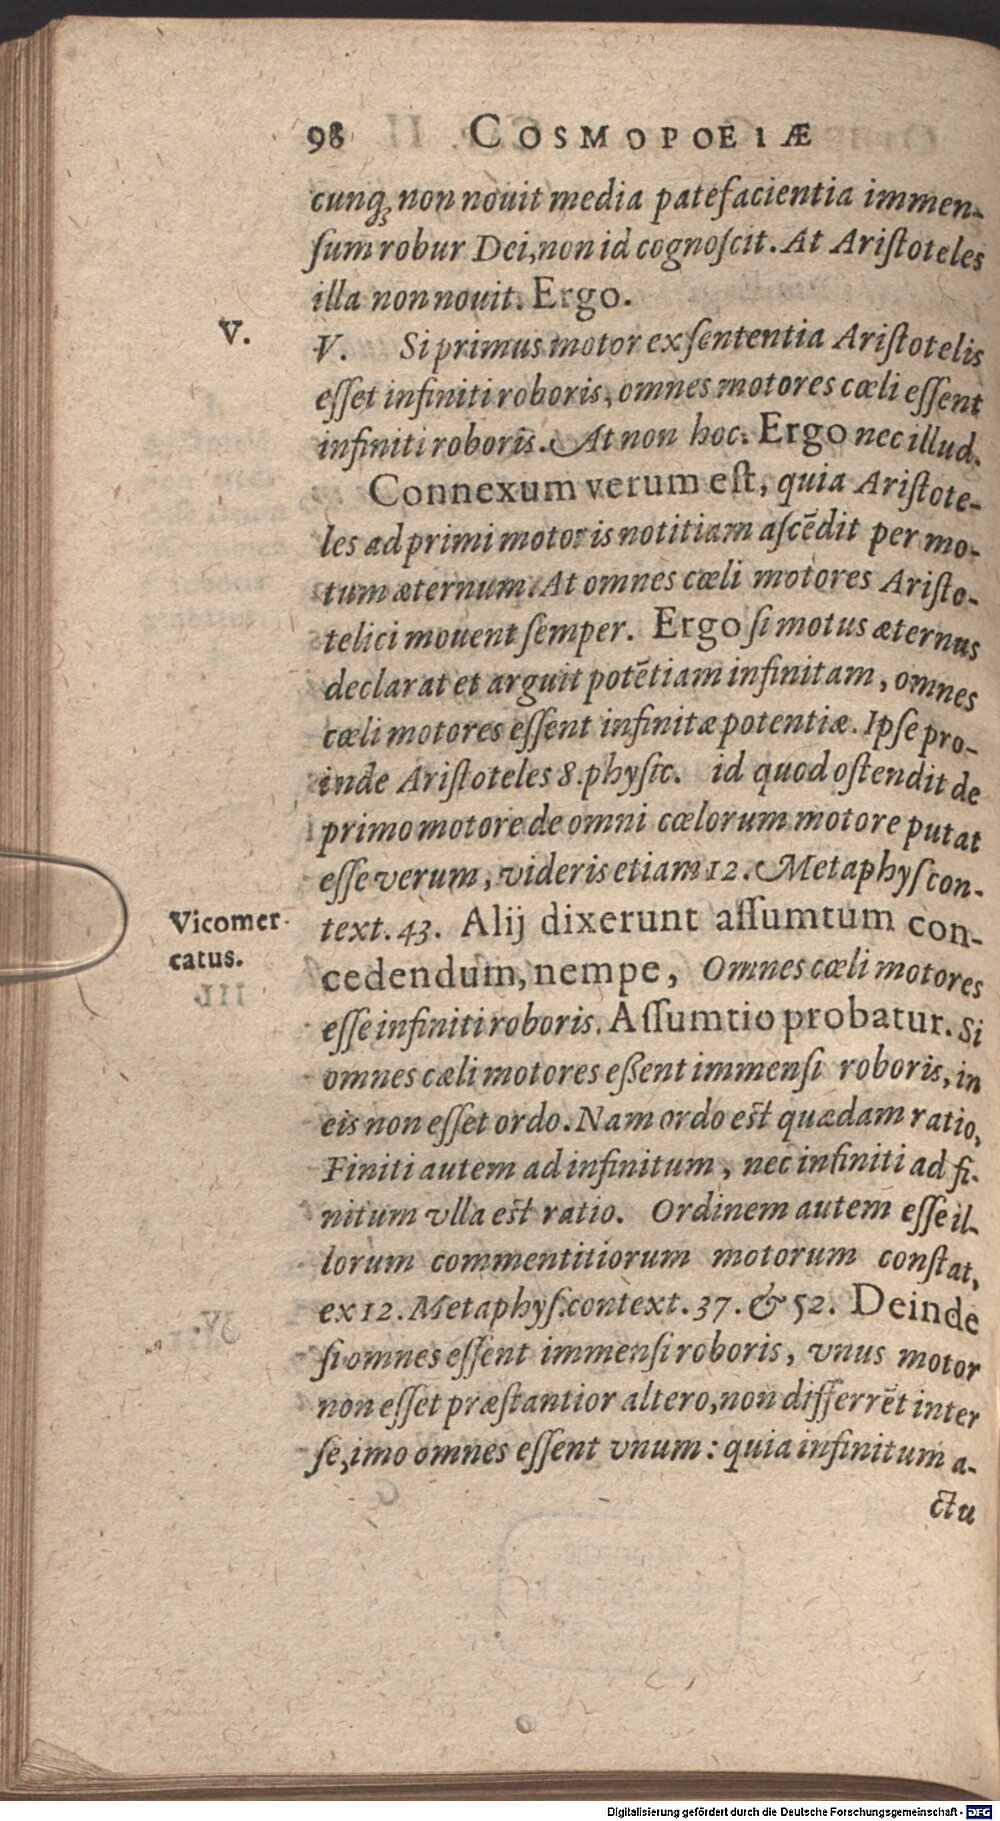 98 COSMOPOEIÆ
cunq; non nouit media patefacientia immen-
ſum robur Dei, non id cognoſcit. At Ariſtoteles
illa non nouit. Ergo.
V.
V. Si primus motor ex ſententia Ariſtotelis
eſſet infiniti roboris, omnes motores cœli eſſent
infiniti roboris. At non hoc. Ergo nec illud.
Connexum verum eſt, quia Ariſtote-
les ad primi motoris notitiam aſcēdit per mo-
tum æternum. At omnes cœli motores Ariſto-
telici mouent ſemper. Ergo ſi motus æternus
declarat et arguit potētiam infinitam, omnes
cœli motores eſſent infinitæ potentiæ. Ipſe pro-
inde Ariſtoteles 8. phyſic. id quod oſtendit de
primo motore de omni cœlorum motore putat
eſſe verum, videris etiam 12. Metaphyſ con-
Vicomer-
catus.
text. 43. Alij dixerunt aſſumtum con-
cedendum, nempe, Omnes cœli motores
eſſe infiniti roboris. Aſſumtio probatur. Si
omnes cœli motores eßent immenſi roboris, in
eis non eſſet ordo. Nam ordo eſt quædam ratio,
Finiti autem ad infinitum, nec infiniti ad fi-
nitum vlla eſt ratio. Ordinem autem eſſe il-
lorum commentitiorum motorum conſtat,
ex 12. Metaphyſ. context. 37. & 52. Deinde
ſi omnes eſſent immenſi roboris, vnus motor
non eſſet præſtantior altero, non differrēt inter
ſe, imo omnes eſſent vnum: quia infinitum a-
ctu
Digitalisierung gefördert durch die Deutsche Forschungsgemeinschaft - DFG